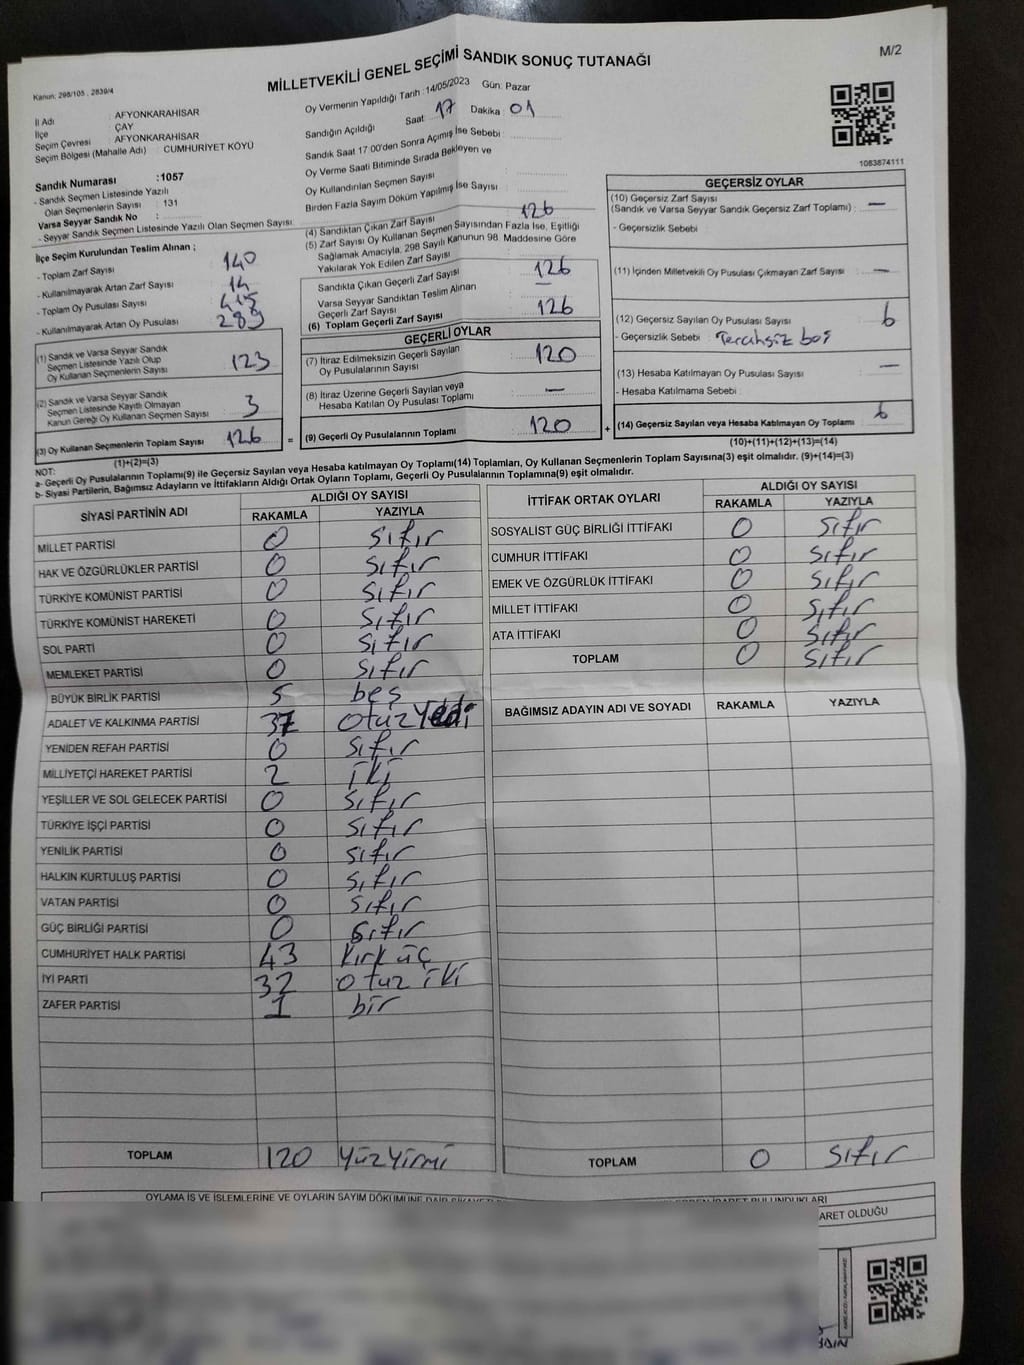 MİLLETVEKİLİ GENEL SEÇİMİ SANDIK SONUÇ TUTANAĞI
M/2
Kanun: 298/105 , 2839/4
İl Adı : AFYONKARAHİSAR
İlçe : ÇAY
Seçim Çevresi : AFYONKARAHİSAR
Seçim Bölgesi (Mahalle Adı) : CUMHURİYET KÖYÜ
Sandık Numarası :1057
- Sandık Seçmen Listesinde Yazılı
Olan Seçmenlerin Sayısı : 131
Varsa Seyyar Sandık No :
- Seyyar Sandık Seçmen Listesinde Yazılı Olan Seçmen Sayısı
Oy Vermenin Yapıldığı Tarih :14/05/2023 Gün: Pazar
Sandığın Açıldığı Saat 17 Dakika 01
Sandık Saat 17:00'den Sonra Açımış İse Sebebi :
Oy Verme Saati Bitiminde Sırada Bekleyen ve
Oy Kullandırılan Seçmen Sayısı
Birden Fazla Sayım Döküm Yapılmış İse Sayısı :
1083874111
İlçe Seçim Kurulundan Teslim Alınan ;
- Toplam Zarf Sayısı 140
- Kullanılmayarak Artan Zarf Sayısı 14
- Toplam Oy Pusulası Sayısı
- Kullanılmayarak Artan Oy Pusulası 289
(1) Sandık ve Varsa Seyyar Sandık
Seçmen Listesinde Yazılı Olup
Oy Kullanan Seçmenlerin Sayısı 123
(2) Sandık ve Varsa Seyyar Sandık
Seçmen Listesinde Kayıtlı Olmayan
Kanun Gereği Oy Kullanan Seçmen Sayısı 3
(3) Oy Kullanan Seçmenlerin Toplam Sayısı 126 =
(1)+(2)=(3)
(4) Sandıktan Çıkan Zarf Sayısı 126
(5) Zarf Sayısı Oy Kullanan Seçmen Sayısından Fazla İse, Eşitliği
Sağlamak Amacıyla, 298 Sayılı Kanunun 98. Maddesine Göre
Yakılarak Yok Edilen Zarf Sayısı
Sandıkta Çıkan Geçerli Zarf Sayısı 126
Varsa Seyyar Sandıktan Teslim Alınan
Geçerli Zarf Sayısı : —
(6) Toplam Geçerli Zarf Sayısı 126
GEÇERLİ OYLAR
(7) İtiraz Edilmeksizin Geçerli Sayılan
Oy Pusulalarının Sayısı 120
(8) İtiraz Üzerine Geçerli Sayılan veya
Hesaba Katılan Oy Pusulası Toplamı —
(9) Geçerli Oy Pusulalarının Toplamı 120 +
GEÇERSİZ OYLAR
(10) Geçersiz Zarf Sayısı
(Sandık ve Varsa Seyyar Sandık Geçersiz Zarf Toplamı) : —
- Geçersizlik Sebebi :
(11) İçinden Milletvekili Oy Pusulası Çıkmayan Zarf Sayısı : —
(12) Geçersiz Sayılan Oy Pusulası Sayısı 6
- Geçersizlik Sebebi : Tercihsiz boş
(13) Hesaba Katılmayan Oy Pusulası Sayısı : —
- Hesaba Katılmama Sebebi :
(14) Geçersiz Sayılan veya Hesaba Katılmayan Oy Toplamı 6
(10)+(11)+(12)+(13)=(14)
NOT:
a- Geçerli Oy Pusulalarının Toplamı(9) ile Geçersiz Sayılan veya Hesaba katılmayan Oy Toplamı(14) Toplamları, Oy Kullanan Seçmenlerin Toplam Sayısına(3) eşit olmalıdır. (9)+(14)=(3)
b- Siyasi Partilerin, Bağımsız Adayların ve İttifakların Aldığı Ortak Oyların Toplamı, Geçerli Oy Pusulalarının Toplamına(9) eşit olmalıdır.
SİYASİ PARTİNİN ADI ALDIĞI OY SAYISI
RAKAMLA YAZIYLA
MİLLET PARTİSİ 0 sıfır
HAK VE ÖZGÜRLÜKLER PARTİSİ 0 sıfır
TÜRKİYE KOMÜNİST PARTİSİ 0 sıfır
TÜRKİYE KOMÜNİST HAREKETİ 0 sıfır
SOL PARTİ 0 sıfır
MEMLEKET PARTİSİ 0 sıfır
BÜYÜK BİRLİK PARTİSİ 5 beş
ADALET VE KALKINMA PARTİSİ 37 otuz yedi
YENİDEN REFAH PARTİSİ 0 sıfır
MİLLİYETÇİ HAREKET PARTİSİ 2 iki
YEŞİLLER VE SOL GELECEK PARTİSİ 0 sıfır
TÜRKİYE İŞÇİ PARTİSİ 0 sıfır
YENİLİK PARTİSİ 0 sıfır
HALKIN KURTULUŞ PARTİSİ 0 sıfır
VATAN PARTİSİ 0 sıfır
GÜÇ BİRLİĞİ PARTİSİ 0 sıfır
CUMHURİYET HALK PARTİSİ 43 kırk üç
İYİ PARTİ 32 otuz iki
ZAFER PARTİSİ 1 bir
TOPLAM 120 yüzyirmi
İTTİFAK ORTAK OYLARI ALDIĞI OY SAYISI
RAKAMLA YAZIYLA
SOSYALİST GÜÇ BİRLİĞİ İTTİFAKI 0 sıfır
CUMHUR İTTİFAKI 0 sıfır
EMEK VE ÖZGÜRLÜK İTTİFAKI 0 sıfır
MİLLET İTTİFAKI 0 sıfır
ATA İTTİFAKI 0 sıfır
TOPLAM 0 sıfır
BAĞIMSIZ ADAYIN ADI VE SOYADI RAKAMLA YAZIYLA
TOPLAM 0 sıfır
OYLAMA İŞ VE İŞLEMLERİNE VE OYLARIN SAYIM DÖKÜMÜNE DAİR
ARET OLDUĞU